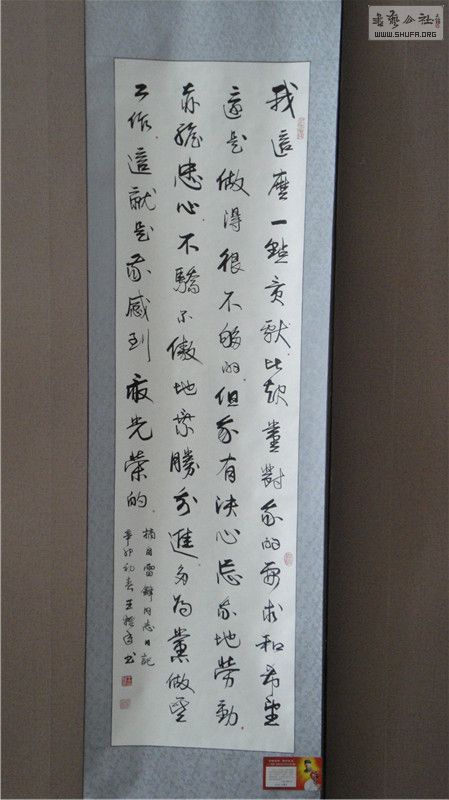 我這麼一點貢獻比起黨對我的要求和希望
這是做得很不够的但我有決心忘我地勞動
赤膽忠心不驕不傲地乘勝前進多為黨做些
工作這就是我感到最光榮的
摘自雷鋒同志日記
辛卯初春王書
書藝公社
WWW.SHUFA.ORG